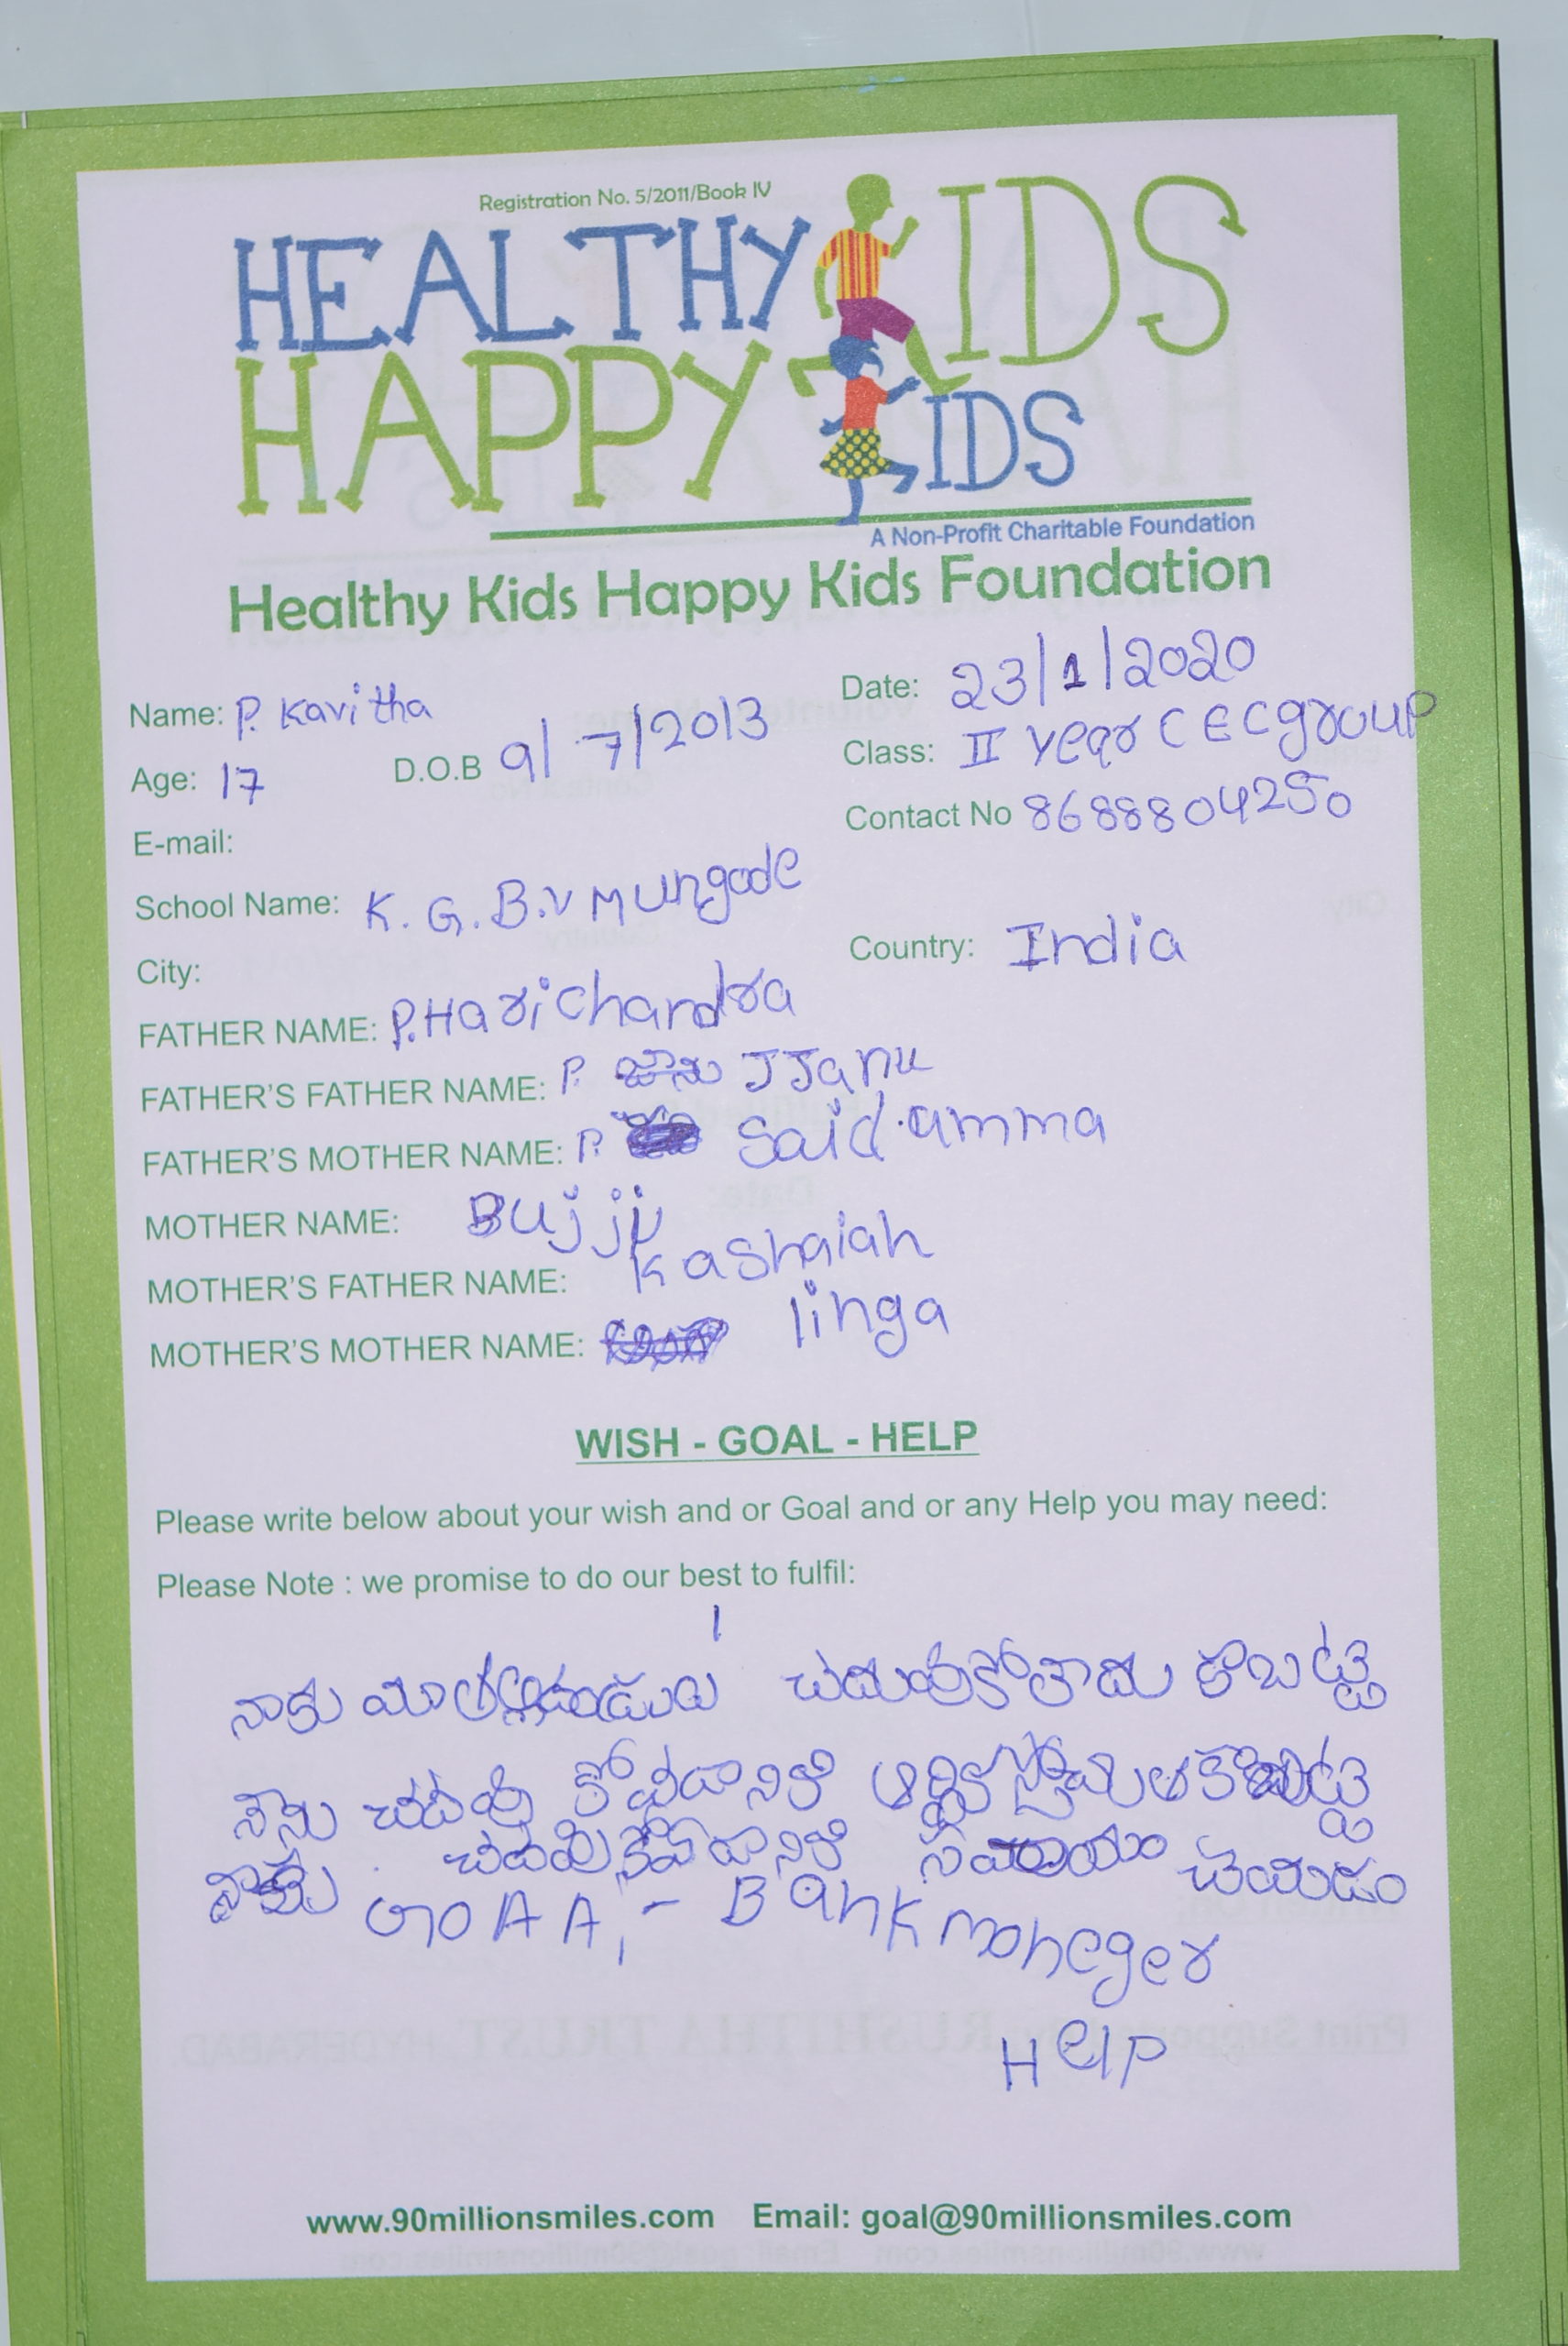 Registration No. 5/2011/Book IV
HEALTHY KIDS
HAPPY KIDS
A Non-Profit Charitable Foundation
Healthy Kids Happy Kids Foundation
Name: P. Kavitha
Date: 23/1/2020
Age: 17 D.O.B 9/7/2013
Class: II year CECgroup
E-mail:
Contact No 8688804250
School Name: K.G.B.V Mungode
City:
Country: India
FATHER NAME: P.Harichandra
FATHER'S FATHER NAME: P. JJanu
FATHER'S MOTHER NAME: P. Said.amma
MOTHER NAME: Bujji
MOTHER'S FATHER NAME: Kashaiah
MOTHER'S MOTHER NAME: linga
WISH - GOAL - HELP
Please write below about your wish and or Goal and or any Help you may need:
Please Note : we promise to do our best to fulfil:
నాకు మా చదువుకోతాదు కాబట్టి
నేను చదవు ఆర్ధిక
చేయడం
GOAA,- Bank maneger
Help
www.90millionsmiles.com Email: goal@90millionsmiles.com